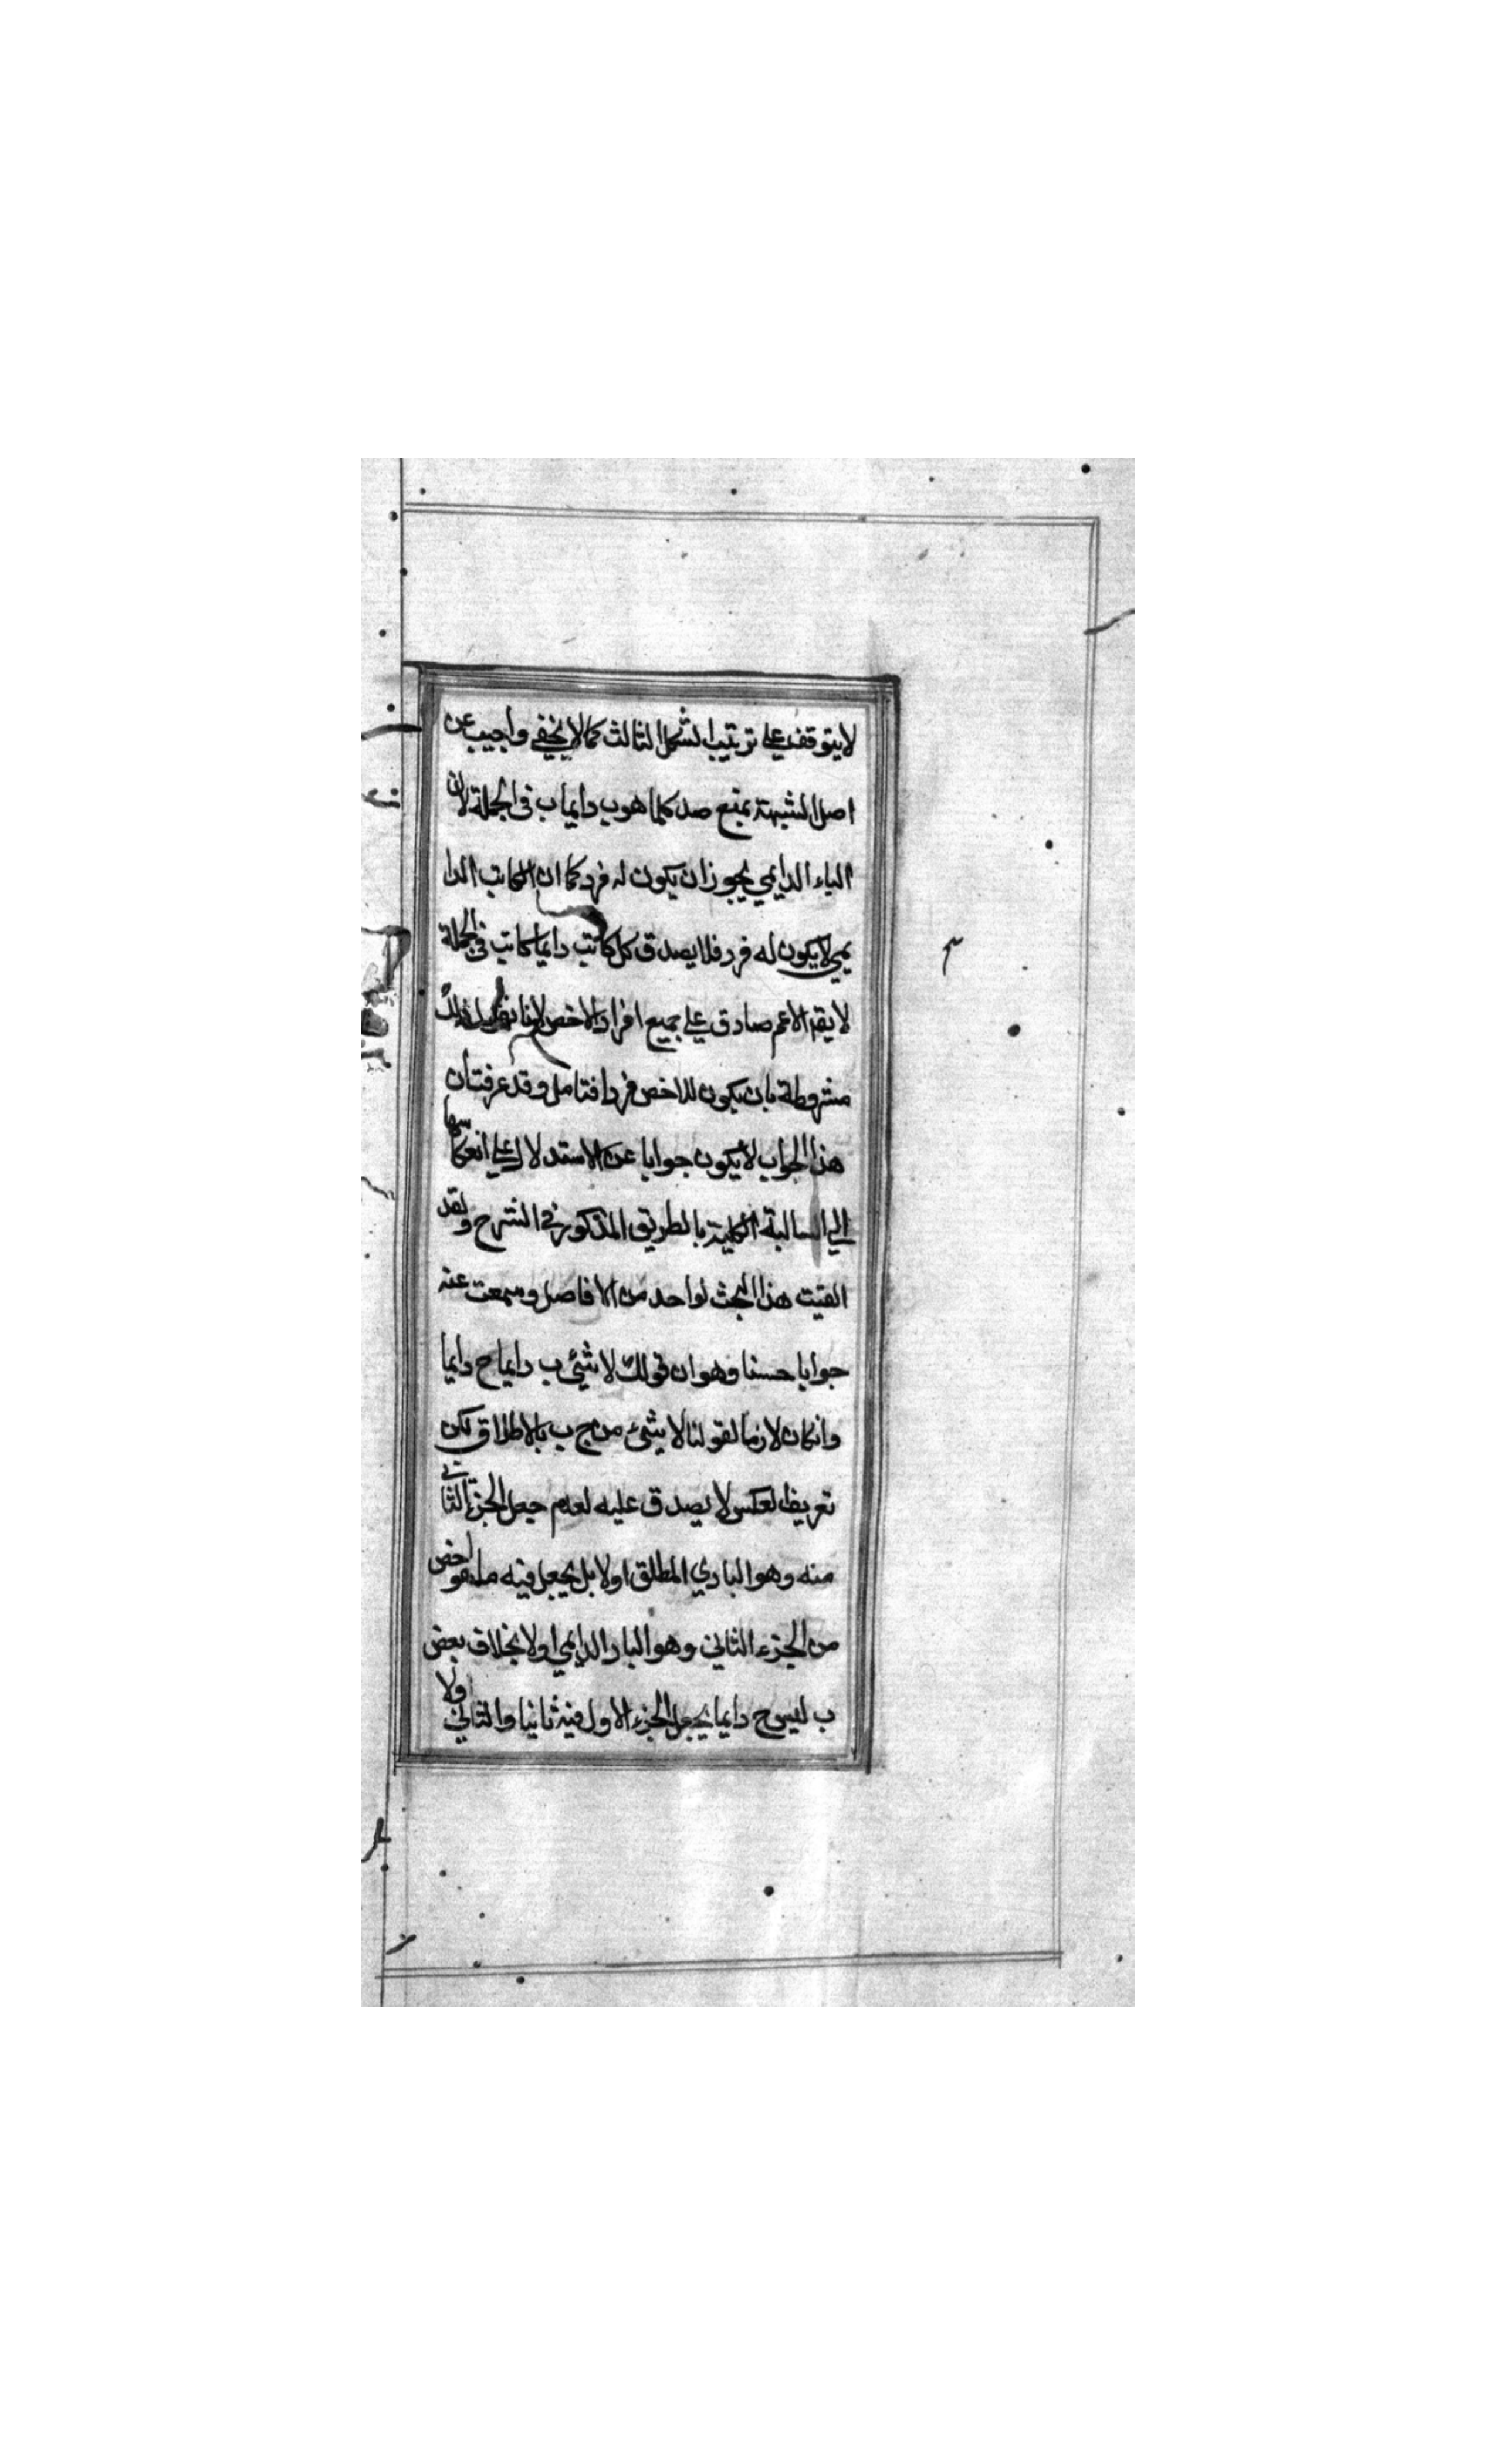 لايتوقف علي ترتيب الشكل الثالث كما لا يخفي واجيب عن
اصل الشبهة بمنع صدق كلما هو ب دايما ب في الجملة لان
الباء الدايمي يجوز ان يكون له فرد كما ان الكاتب الدا
يمي لا يكون له فرد فلا يصدق كل كاتب دايما كاتب في الجملة
لا يقه الاعم صادق علي جميع افراد الاخص لانا نقول ذلك
مشروطة بان يكون للاخص فردا فتامل وقد عرفت ان
هذا الجواب لا يكون جوابا عن الاستدلال علي انعكاسها
الي السالبة الكلية بالطريق المذكور في الشرح ولقد
القيت هذا البحث لواحد من الافاضل وسمعت عنه
جوابا حسنا وهو ان قولك لا شيئ ب دايما ح دايما
وانكان لازما لقولنا لا شيء من ج ب بالاطلاق لكن
تعريف العكس لا يصدق عليه لعدم جعل الجزء الثاني
منه وهو البادي المطلق اولا بل يجعل فيه ما هو اخص
من الجزء الثاني وهو الباء الدايمي اولا بخلاف بعض
ب ليس ح دايما يجعل الجزء الاول فيه ثانيا والثاني اولا